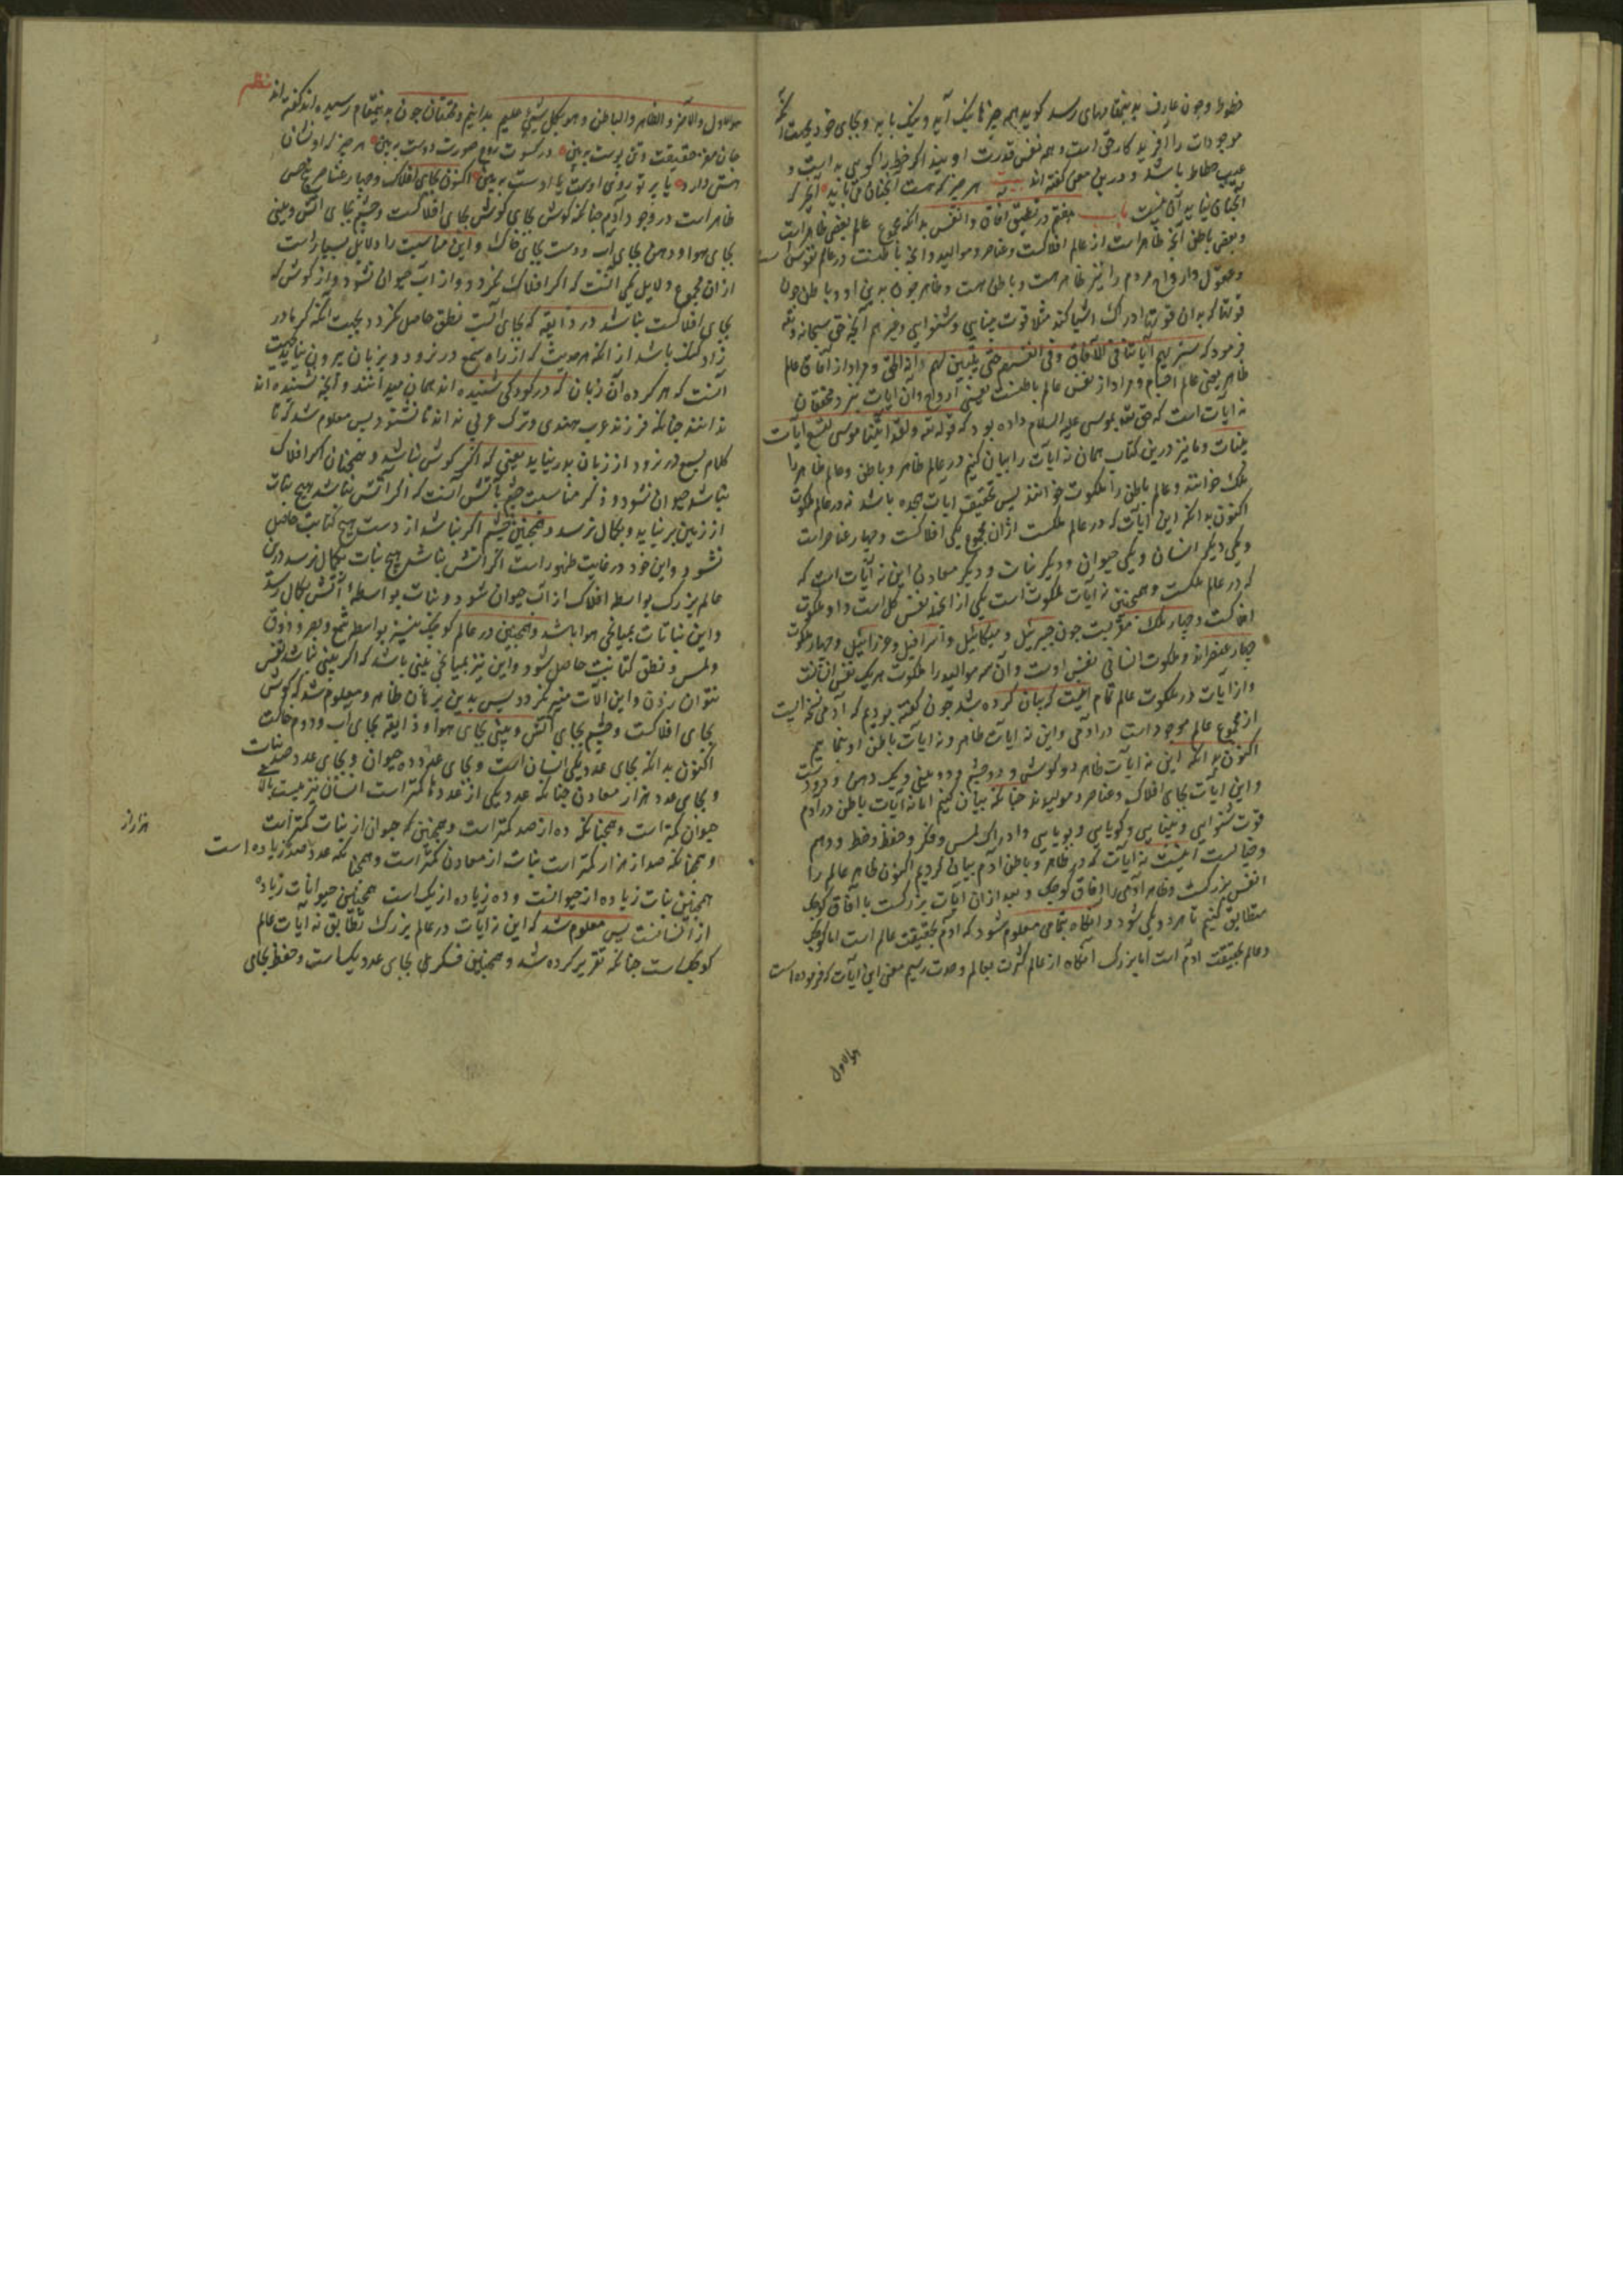 خطوط و چون عارف بدینمقامهای رسد کوید همه چیزها نیک آید و نیک باید و بجای خود
موجودات را آفریدکار حق است و هم نقش قدرت او بیند اگر خط را کویی بد است و
عیب خطاط باشد و درین معنی کفته اند بیت هر چیز که هست آنچنان می باید آن چیز که
آنچنان نباید آن نیست باب هفتم در تطبیق آفاق و انفس بدانکه مجموع عالم بعضی ظاهر است
و بعضی باطن آنچه ظاهر است از عالم افلاکست و عناصر و موالید و آنچه باطنست در عالم نفوس
و عقول و ارواح مردم را نیز ظاهر هست و باطن هست و ظاهر چون بدن او و باطن چون
قوتها که بدان قوتها ادراک اشیا کند مثلا قوت بینایی و شنوایی و غیر هم آنچه حق سبحانه و تعه
فرمود که سنریهم آیاتنا فی الآفاق و فی انفسهم حتی یتبین لهم انه الحق و مراد از آفاق عالم
ظاهر یعنی عالم اجسام و مراد از نفس عالم باطنست یعنی ارواح و آن آیات نزد محققان
نه آیات است که حق تعه بموسی علیه السلام داده بود که قوله تعه ولقد آتینا موسی تسع آیات
بینات و ما نیز درین کتاب همان نه آیات را بیان کنیم در عالم ظاهر و باطن و عالم ظاهر را
ملک خوانند و عالم باطن را ملکوت خوانند پس تحقیق آیات هجده باشد نه در عالم ملکوت
اکنون بدانکه این آیات که در عالم ملکست ازان مجموع یکی افلاکست و چهار عناصر است
و یکی دیکر انسان و یکی حیوان و دیکر نبات و دیکر معادن این نه آیات است که
که در عالم ملکست و همچنین نه آیات ملکوت است یکی از آنجمله نفس کل است و او ملکوت
افلاکست و چهار ملک مقربست چون جبرئیل و میکائیل و اسرافیل و عزرائیل و چهار ملکوت
چهار عنصراند و ملکوت انسانی نفس اوست و آن سه موالید را ملکوت هر یک نفس آن
و از آیات در ملکوت عالم تمام اینست که بیان کرده شد چون کفته بودیم که آدمی نسخه ایست
از مجموع عالم موجود است در آدمی و این نه آیات ظاهر و نه آیات باطن او بنماییم
اکنون بدانکه این نه آیات ظاهر دو کوش و دو چشم و دو بینی و یک دهن و دو دست
و این آیات بجای افلاک و عناصر و موالیدند چنانکه بیان کنیم اما نه آیات باطن در آدم
قوت شنوایی و بینایی و کویایی و بویایی و ادراک لمس و فکر و حفظ و خط و وهم
و خیالست اینست نه آیات که در ظاهر و باطن آدم بیان کردیم اکنون ظاهر عالم را
انفس بزرکست و ظاهر آدمی را آفاق کوچک و بعد ازان آیات بزرکست با آفاق کوچک
مطابق کنیم تا هر دو یکی شود و آنکاه بتمامی معلوم شود که آدم بحقیقت عالم است اما کوچک
و عالم بحقیقت آدم است اما بزرک آنکاه از عالم کثرت بعالم وحدت رسیم معنی این آیات که فرموده است
هوالاول
هوالاول والآخر والظاهر والباطن و هو بکل شیء علیم بدانیم و محققان چون بدینمقام رسیده اند کفته اند نظم
جان مغز حقیقت و تن پوست ببین در کسوت روح صورت دوست ببین هر چیز که او نشان
هستی دارد یا پرتو روی اوست یا اوست ببین اکنون بجای افلاک و چهار عناصر پنج حس
ظاهر است در وجود آدم چنانکه کوش بجای کوش بجای افلاکست و چشم بجای آتش و بینی
بجای هوا و دهن بجای آب و دست بجای خاک و این مناسبت را دلایل بسیار است
ازان مجموع دلایل یکی آنست که اکر افلاک نکردد و از آب حیوان نشود و از کوش که
بجای افلاکست نباشد در ذایقه که بجای آبست نطق حاصل نکردد بجهت آنکه کر مادر
زاد کنک باشد از انکه حدیث که از راه سمع در نرود و بزبان بیرون نیاید بجهت
آنست که هر کرده آن زبان که در کودکی شنیده اند همان میدانند و آنچه نشنیده اند
ندانند چنانکه فرزند عرب هندی و ترک عربی نداند تا نشنود پس معلوم شد که تا
کلام بسمع در نرود از زبان بدر نیاید یعنی که اکر کوش نباشد و همچنان اکر افلاک
نباشد حیوان نشود و ذکر مناسبت چشم بآتش آنست که اکر آتش نباشد هیچ نبات
از زمین برنیاید و بکمال نرسد و همچنین چشم اکر نباشد از دست هیچ کتابت حاصل
نشود و این خود در غایت ظهور است اکر آتش نباشد هیچ نبات بکمال نرسد درین
عالم بزرک بواسطه افلاک از آب حیوان شود و نبات بواسطه آتش بکمال رسد
و این نباتات بمیانجی هوا باشد و همچنین در عالم کوچک نیز بواسطه سمع و بصر و ذوق
و لمس و نطق کتابت حاصل شود و این نیز بمیانجی بینی باشد که اکر بینی نباشد نفس
نتوان زدن و این آلات میسر نکردد پس بدین برهان ظاهر و معلوم شد که کوش
بجای افلاکست و چشم بجای آتش و بینی بجای هوا و ذایقه بجای آب و دوم خاکست
اکنون بدانکه بجای عدد یکی انسان است و بجای عدد ده حیوان و بجای عدد صد نبات
و بجای عدد هزار معادن چنانکه عدد یکی از عددها کمتر است انسان نیز
حیوان کمتر است و همچنانکه ده از صد کمتر است و همچنین که حیوان از نبات کمتر است
و همچنانکه صد از هزار کمتر است نبات از معادن کمتر است و همچنانکه عدد صد از ده زیاده است
همچنین نبات زیاده از حیوانست و ده زیاده از یک است همچنین حیوانات زیاده
از انسانست پس معلوم شد که این نه آیات در عالم بزرک تطابق نه آیات عالم
کوچک است چنانکه تقریر کرده شد و همچنین فکر بجای عدد یک است و حفظ بجای